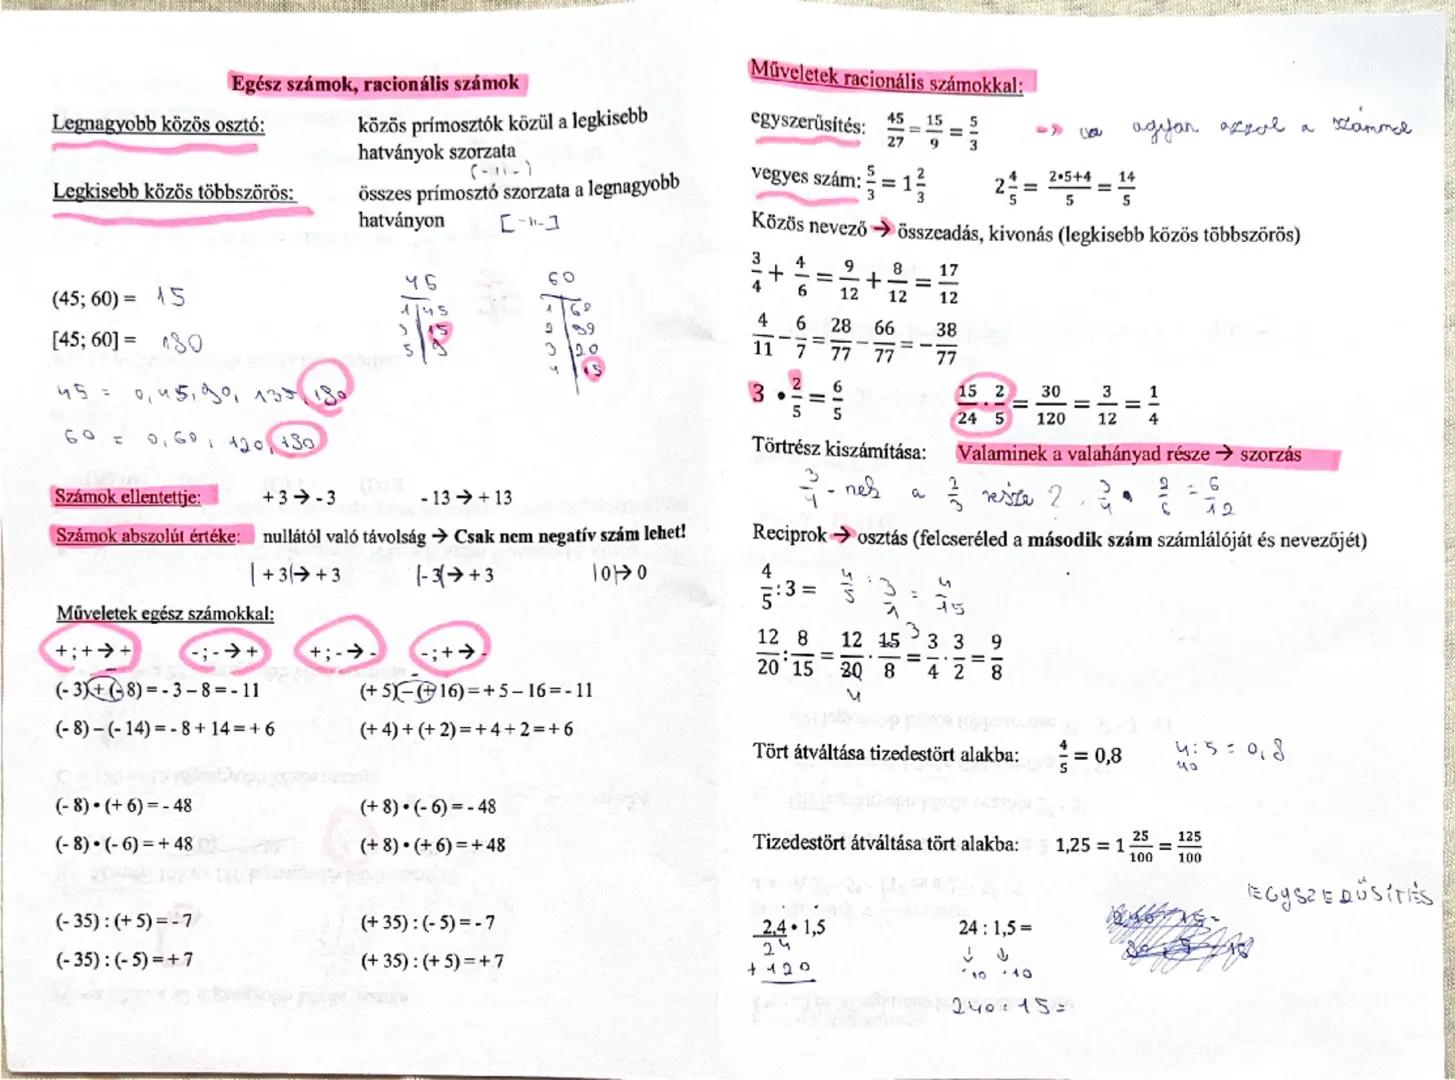 Egész számok, racionális számok
Legnagyobb közös osztó: közös prímosztók közül a legkisebb
hatványok szorzata
(-11-)
Legkisebb közös többszörös: összes prímosztó szorzata a legnagyobb
hatványon [-11-]
45 60
(45; 60) = 15
1 | 45 1 | 60
3 | 15
[45; 60] = 180
5 | 9 3 | 20
4 | 15
45 = 0, 45, 90, 135, 180
60 = 0, 60, 120, 180
Számok ellentettje: + 3 → - 3 - 13 → + 13
Számok abszolút értéke: nullától való távolság → Csak nem negatív szám lehet!
| + 3| → + 3 |- 3| → + 3 |0| → 0
Műveletek egész számokkal:
+ ; + → + - ; - → + + ; - → - - ; + → -
(- 3) + (- 8) = - 3 – 8 = - 11 (+ 5) – (+ 16) = + 5 – 16 = - 11
(- 8) – (- 14) = - 8 + 14 = + 6 (+ 4) + (+ 2) = + 4 + 2 = + 6
(- 8) • (+ 6) = - 48 (+ 8) • (- 6) = - 48
(- 8) • (- 6) = + 48 (+ 8) • (+ 6) = + 48
(- 35) : (+ 5) = - 7 (+ 35) : (- 5) = - 7
(- 35) : (- 5) = + 7 (+ 35) : (+ 5) = + 7
Műveletek racionális számokkal:
egyszerűsítés: 45/27 = 15/9 = 5/3 → ugyan azzal a számmal
vegyes szám: 5/3 = 1 2/3 2 4/5 = 2•5+4/5 = 14/5
Közös nevező → összeadás, kivonás (legkisebb közös többszörös)
3/4 + 4/6 = 9/12 + 8/12 = 17/12
4/11 - 6/7 = 28/77 - 66/77 = - 38/77
3 • 2/5 = 6/5 15/24 · 2/5 = 30/120 = 3/12 = 1/4
Törtrész kiszámítása: Valaminek a valahányad része → szorzás
3/4 - nek a 2/3 része ? 3/4 • 2/3 = 6/12
Reciprok → osztás (felcseréled a második szám számlálóját és nevezőjét)
4/5 : 3 = 4/5 : 3/1 = 4/15
12/20 : 8/15 = 12/20 · 15/8 = 3/4 · 3/2 = 9/8
3
4
Tört átváltása tizedestört alakba: 4/5 = 0,8 4 : 5 = 0,8
40
Tizedestört átváltása tört alakba: 1,25 = 1 25/100 = 125/100
EGYSZERŰSÍTÉS
2,4 • 1,5 24 : 1,5 =
24 ↓ ↓
+ 120 ·10 ·10
240 : 15 =